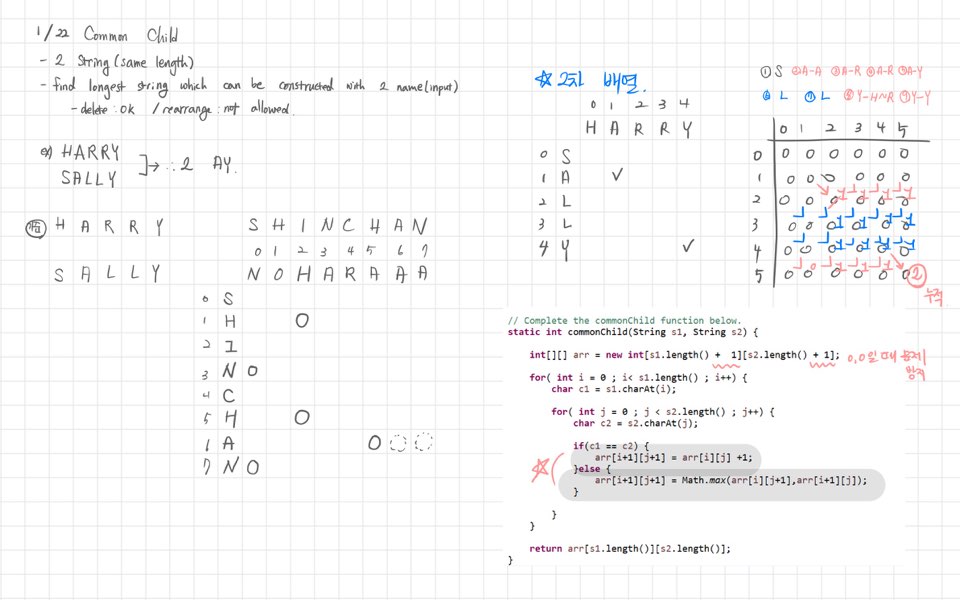 1/22 Common Child
- 2 String (same length)
- find longest string which can be constructed with 2 name (input)
- delete : OK / rearrange : not allowed.
ex) HARRY
SALLY
]→ ∴ 2 AY.
H A R R Y
S A L L Y
S H I N C H A N
0 1 2 3 4 5 6 7
N O H A R A A A
0 S
1 H O
2 I
3 N O
4 C
5 H O
1 A O
7 N O
☆ 2차 배열.
0 1 2 3 4
H A R R Y
0 S
1 A ✓
2 L
3 L
4 Y ✓
① S ② A-A ③ A-R ④ A-R ⑤ A-Y
⑥ L ⑦ L ⑧ Y-HAR ⑨ Y-Y
0 1 2 3 4 5
0 0 0 0 0 0 0
1 0 0 0 0 0 0
2 0 0 0 0 0 0
1 1 1 1
3 0 0 0 0 0 0
1 1 1 1
4 0 0 0 0 0 0
1 1 1 1
5 0 0 0 0 0 0
1 1 1 2
누적
// Complete the commonChild function below.
static int commonChild(String s1, String s2) {
int[][] arr = new int[s1.length() + 1][s2.length() + 1]; 0,0일 때 문제
방지
for( int i = 0 ; i< s1.length() ; i++) {
char c1 = s1.charAt(i);
for( int j = 0 ; j < s2.length() ; j++) {
char c2 = s2.charAt(j);
if(c1 == c2) {
arr[i+1][j+1] = arr[i][j] +1;
}else {
arr[i+1][j+1] = Math.max(arr[i][j+1],arr[i+1][j]);
}
}
}
return arr[s1.length()][s2.length()];
}